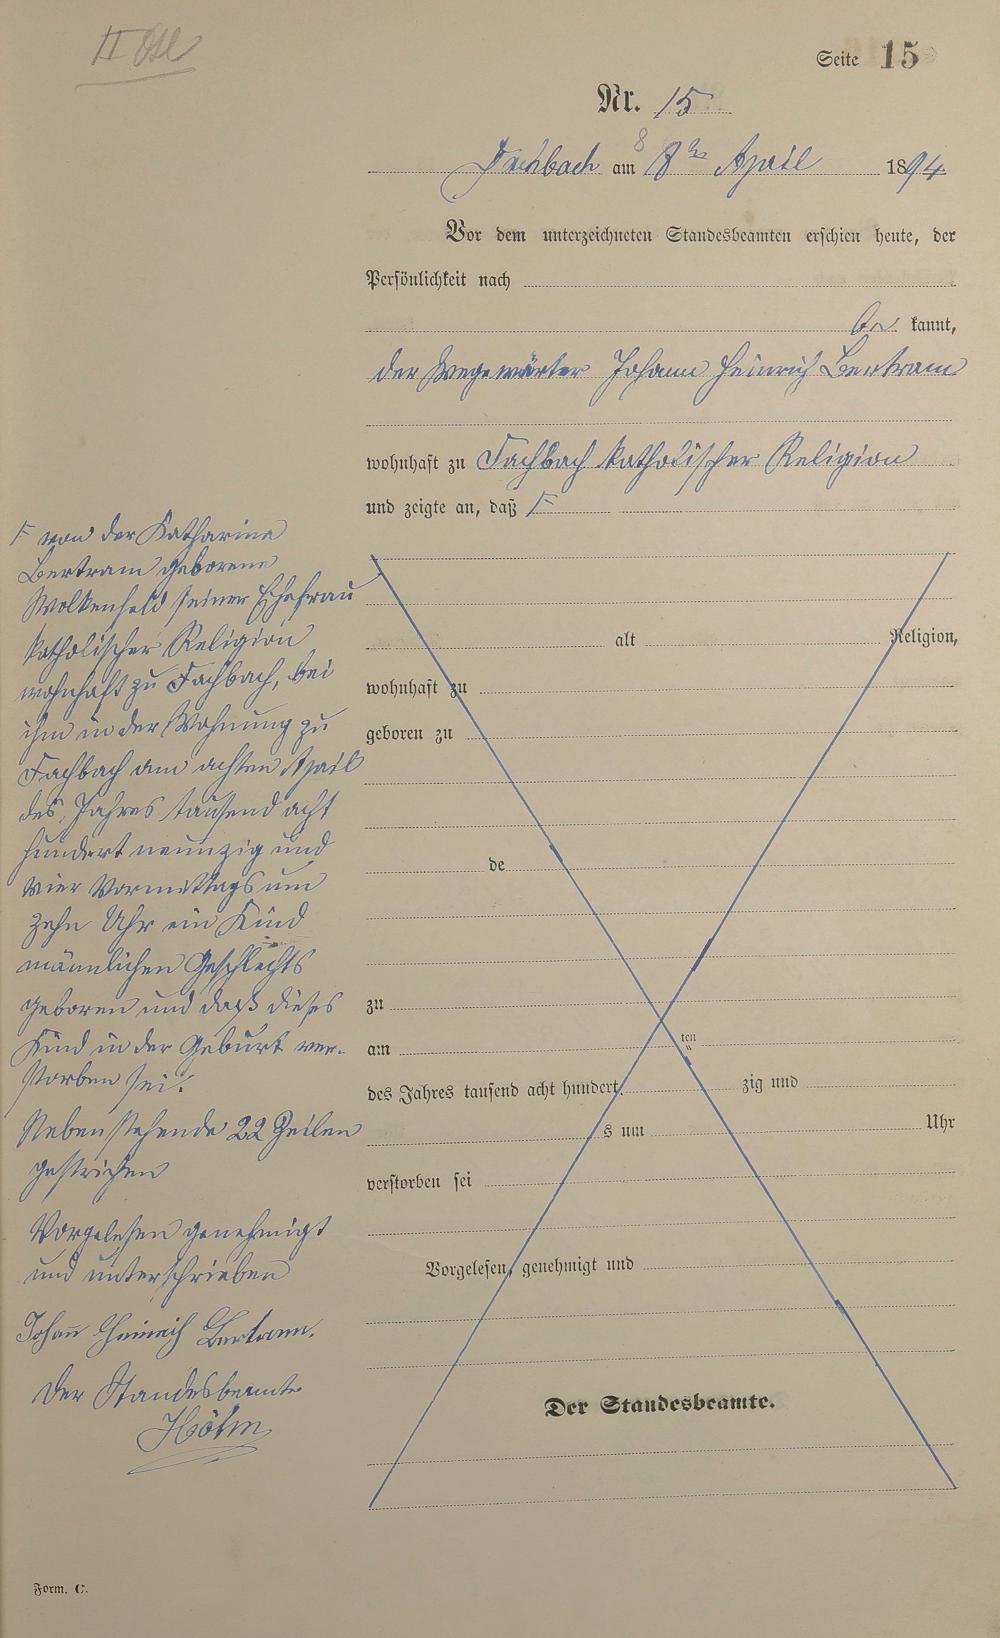 Seite 15
Nr. 15
Fachbach am 8ten April 1894
Vor dem unterzeichneten Standesbeamten erschien heute, der
Persönlichkeit nach
be kannt,
der Wegewärter Johann Heinrich Bertram
wohnhaft zu Fachbach katholischer Religion
und zeigte an, daß F
F von der Katharina
Bertram geborene
Wolkenfeld seiner Ehefrau
katholischer Religion
wohnhaft zu Fachbach, bei
ihm in der Wohnung zu
Fachbach am achten April
des Jahres tausend acht
hundert neunzig und
vier Vormittags um
zehn Uhr ein Kind
männlichen Geschlechts
geboren und daß dieses
Kind in der Geburt ver-
storben sei.
Nebenstehende 22 Zeilen
gestrichen
Vorgelesen genehmigt
und unterschrieben
Johann Heinrich Bertram.
Der Standesbeamte
alt Religion,
wohnhaft zu
geboren zu
de
zu
am ten
des Jahres tausend acht hundert zig und
s um Uhr
verstorben sei
Vorgelesen, genehmigt und
Der Standesbeamte.
Form. C.